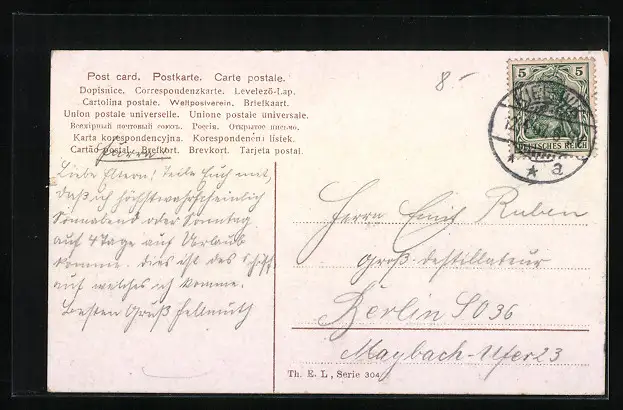 Post card. Postkarte. Carte postale.
Dopisnice. Correspondenzkarte. Levelező-Lap.
Cartolina postale. Weltpostverein. Briefkaart.
Union postale universelle. Unione postale universale.
Всемірный почтовый союзъ. Россія. Открытое письмо.
Karta korespondencyjna. Korespondenční lístek.
Cartão postal. Brefkort. Brevkort. Tarjeta postal.
8-
5 5
DEUTSCHES REICH
a
Hurra!
Liebe Eltern! teile Euch mit,
daß ich höchstwahrscheinlich
Sonnabend oder Sonntag
auf 4 Tage auf Urlaub
komme. Dies ist das Schiff
auf welches ich komme.
Besten Gruß Hellmuth
Herrn Emil Ruben
Groß-Destillateur
Berlin SO 36
Maybach-Ufer 23
Th. E. L., Serie 304